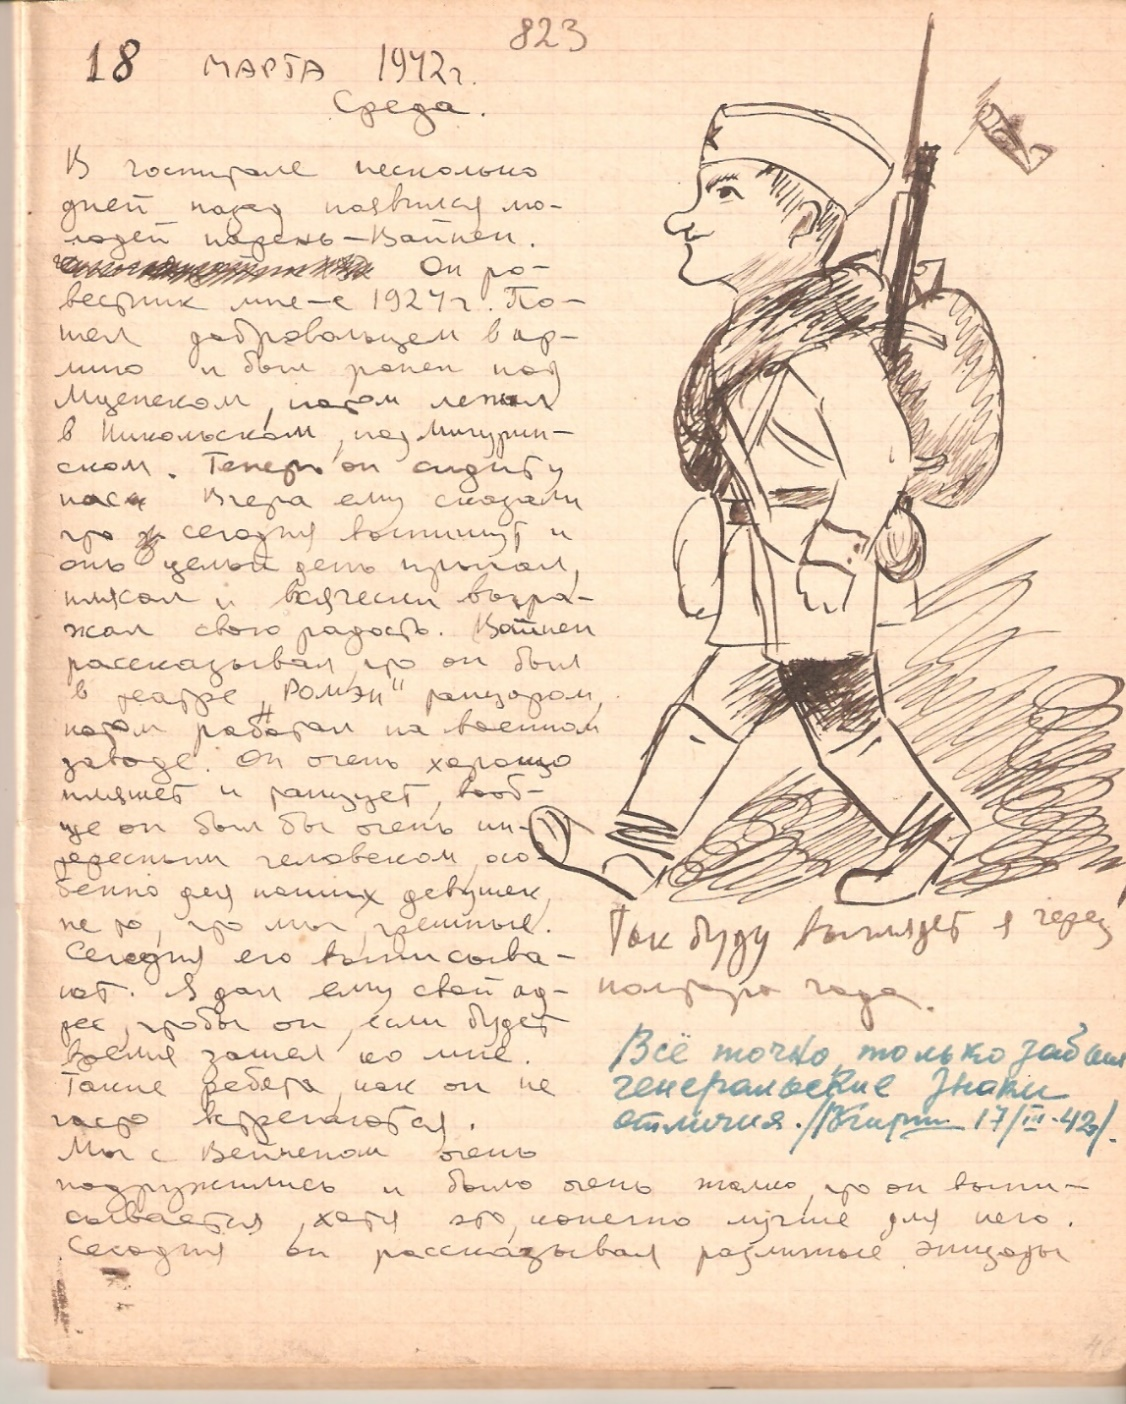 823
18 МАРТА 1942г.
Среда.
В госпитале несколько
дней назад появился мо-
лодой парень – Вайнен.
Он ро-
весник мне – с 1924г. По-
шел добровольцем в ар-
мию и был ранен под
Мценском, потом лежал
в Никольском, под Мичурин-
ском. Теперь он сидит у
нас. Вчера ему сказали
что сегодня выпишут и
он целый день прыгал,
плясал и всячески выра-
жал свою радость. Вайнен
рассказывал, что он был
в театре „Ромэн" танцором,
потом работал на военном
заводе. Он очень хорошо
пляшет и танцует, вооб-
ще он был бы очень ин-
тересным человеком, осо-
бенно для наших девушек,
не то, что мы, грешные.
Сегодня его выписыва-
ют. Я дал ему свой ад-
рес, чтобы он, если будет
время зашел ко мне.
Такие ребята, как он не
часто встречаются.
Мы с Вейненом очень
подружились и было очень жалко, что он выпи-
сывается, хотя это, конечно лучше для него.
Сегодня он рассказывал различные эпизоды
Так буду выглядет я через
полтора года.
Всё точно, только забыл
генеральские знаки
отличия. 17/III-42г/.